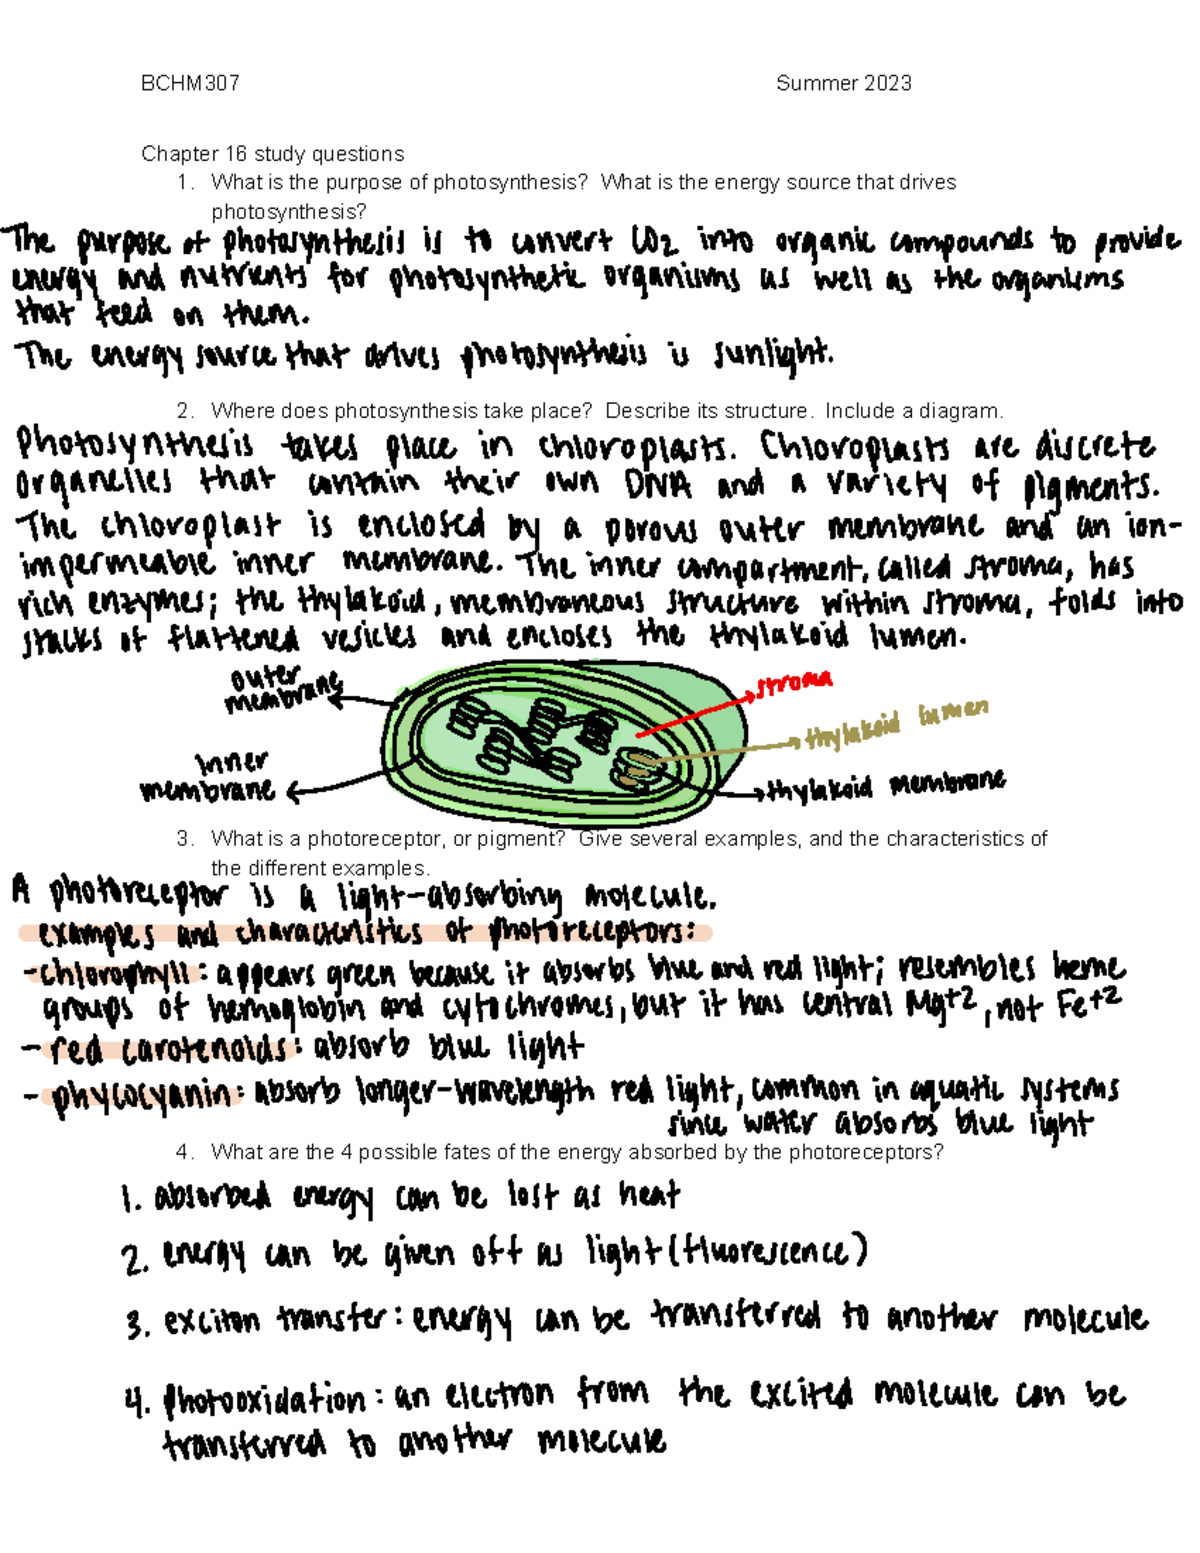 BCHM307 Summer 2023
Chapter 16 study questions
1. What is the purpose of photosynthesis? What is the energy source that drives
photosynthesis?
The purpose of photosynthesis is to convert CO2 into organic compounds to provide
energy and nutrients for photosynthetic organisms as well as the organisms
that feed on them.
The energy source that drives photosynthesis is sunlight.
2. Where does photosynthesis take place? Describe its structure. Include a diagram.
Photosynthesis takes place in chloroplasts. Chloroplasts are discrete
organelles that contain their own DNA and a variety of pigments.
The chloroplast is enclosed by a porous outer membrane and an ion-
impermeable inner membrane. The inner compartment, called stroma, has
rich enzymes; the thylakoid, membraneous structure within stroma, folds into
stacks of flattened vesicles and encloses the thylakoid lumen.
outer
membrane
stroma
thylakoid lumen
inner
membrane
thylakoid membrane
3. What is a photoreceptor, or pigment? Give several examples, and the characteristics of
the different examples.
A photoreceptor is a light-absorbing molecule.
examples and characteristics of photoreceptors:
- chlorophyll: appears green because it absorbs blue and red light; resembles heme
groups of hemoglobin and cytochromes, but it has central Mg+2, not Fe+2
- red carotenoids: absorb blue light
- phycocyanin: absorb longer-wavelength red light, common in aquatic systems
since water absorbs blue light
4. What are the 4 possible fates of the energy absorbed by the photoreceptors?
1. absorbed energy can be lost as heat
2. energy can be given off as light (fluorescence)
3. exciton transfer: energy can be transferred to another molecule
4. Photooxidation: an electron from the excited molecule can be
transferred to another molecule